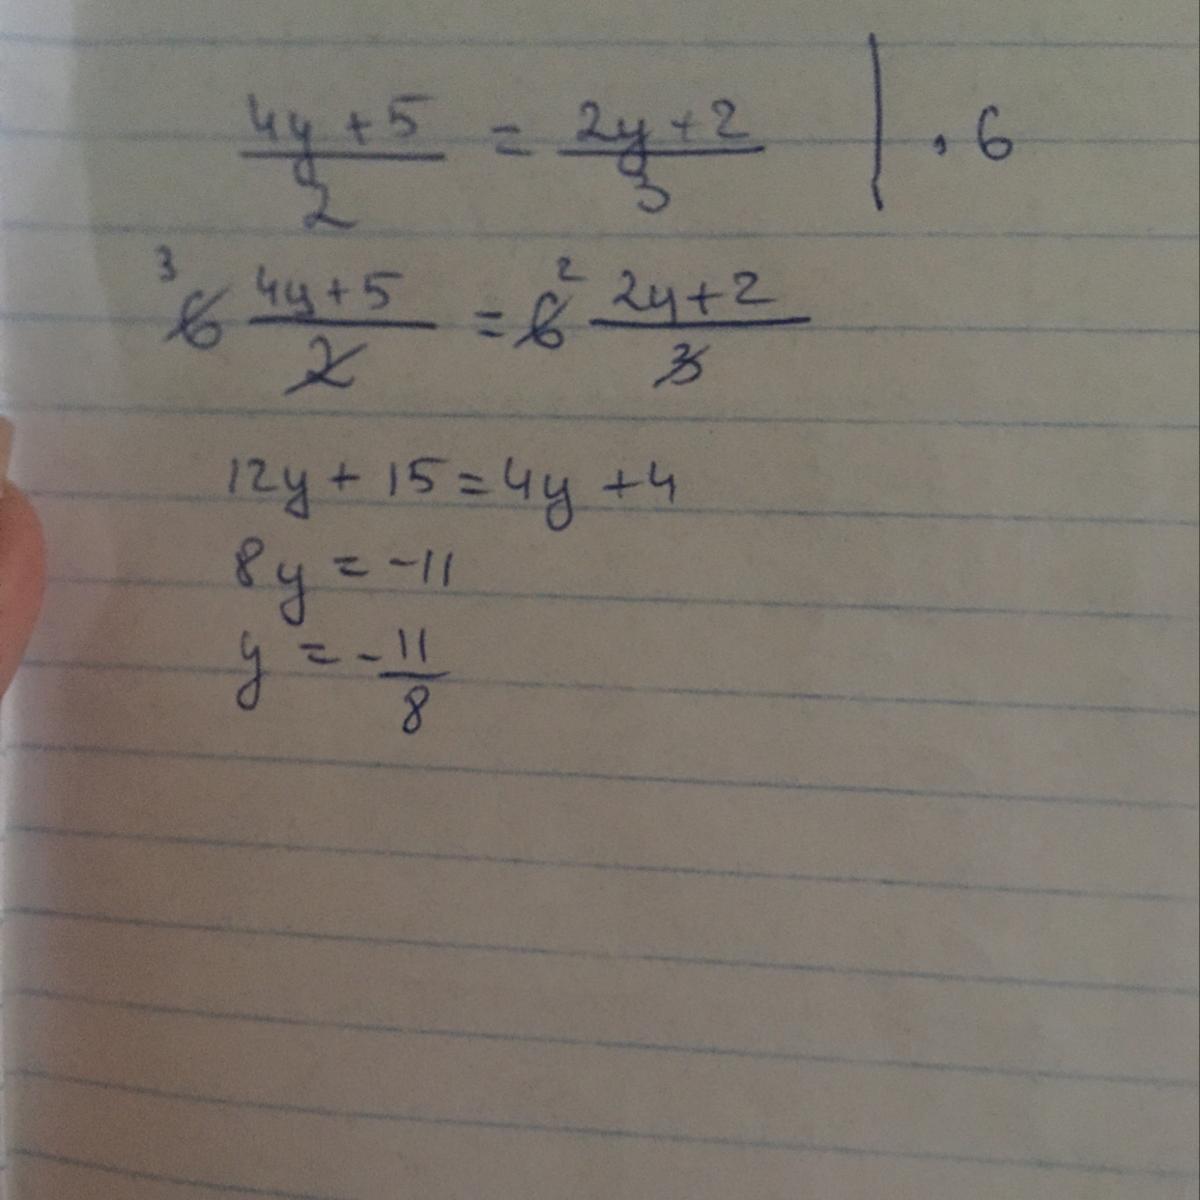 4y + 5 / 2 = 2y + 2 / 3 | · 6
3 6 4y + 5 / 2 = 6 2 2y + 2 / 3
12y + 15 = 4y + 4
8y = -11
y = - 11 / 8